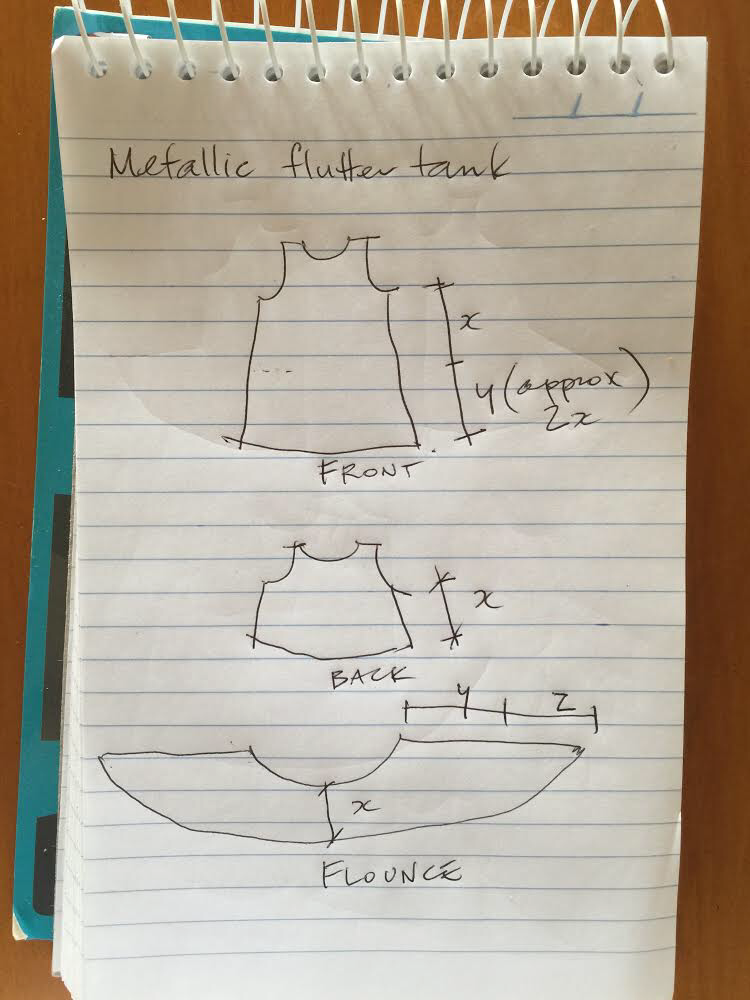 Metallic flutter tank
x
y (approx
2x)
FRONT
x
BACK
y z
x
FLOUNCE